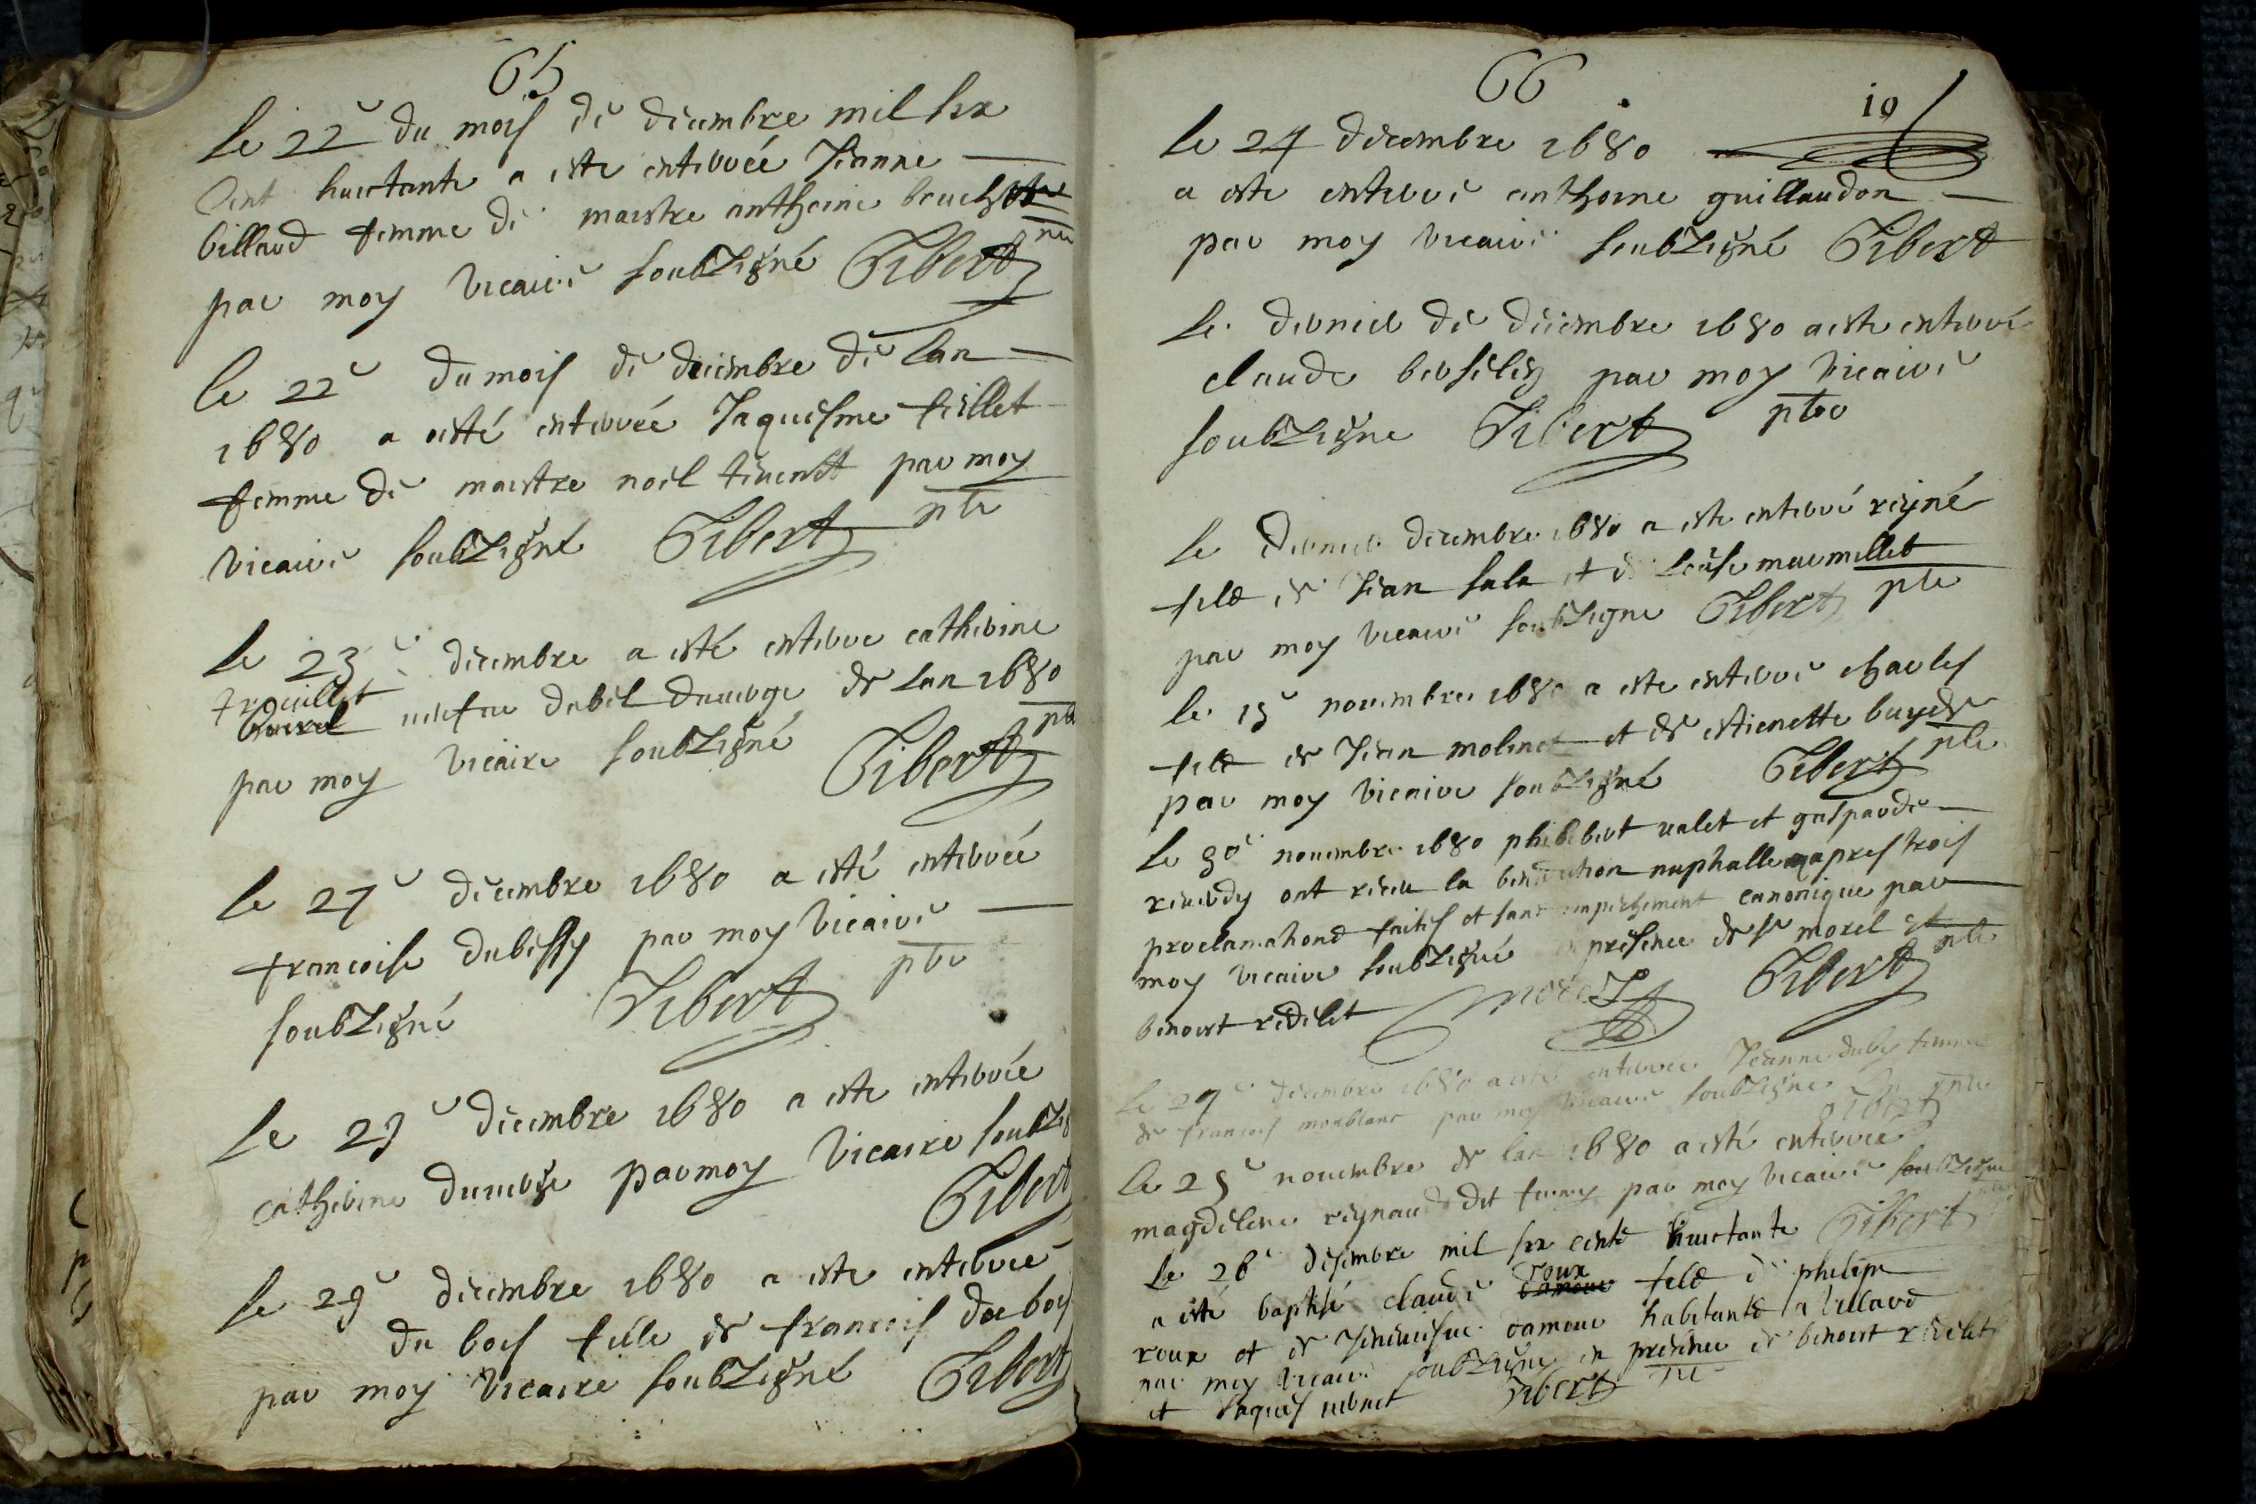 65
Le 22e du mois de decembre mil six
cent huictante a este enterrée Jeanne
billaud femme de maistre anthoine
par moy vicaire soubzigné Gibert pbre
Le 22e du mois de decembre de lan
1680 a esté enterrée Jaquesme feillet
femme de maistre noel par moy
vicaire soubzigné Gibert pbre
Le 23e decembre a esté enterree catherine
trouillet de lan 1680
par moy vicaire soubzigné Gibert pbre
Le 27e decembre 1680 a esté enterrée
francoise dubessy par moy vicaire
soubzigné Gibert pbre
Le 29e decembre 1680 a este enterrée
catherine duverge par moy vicaire soubzig
Gibert
Le 29e decembre 1680 a este enterree
du bois fille de francois du bois
par moy vicaire soubzigné Gibert
66
19
Le 24 decembre 1680
a este enterré anthoine guillaudon
par moy vicaire soubzigné Gibert
Le dernier de decembre 1680 a este enterré
claude par moy vicaire
soubzigne Gibert pbre
Le dernier decembre 1680 a este enterré reyné
filz de Jean sala et de Louise marmillet
par moy vicaire soubzigne Gibert pbre
Le novembre 1680 a este enterré charles
filz de Jean molinet et de estienette
par moy vicaire soubzigné Gibert pbre
Le novembre 1680 philibert valet et gasparde
reverdy ont receu la benediction nuphalle apres trois
proclamations faites et sans empeschement canonique par
moy vicaire soubzigné en presence de sr morel et
benoist redelet morel Gibert pbre
Le 27e decembre 1680 a esté enterree Jeanne dubes femme
de francois monblanc par moy vicaire soubzigne Gibert pbre
Le novembre de lan 1680 a esté enterrée
magdeleine reynaud dit par moy vicaire soubzigne
Le 26e desembre mil six centz huictante Gibert
a esté baptisé claude roux filz de philipe
roux et de damour habitantz a villard
par moy vicaire soubzigne en presence de benoist redelet
et Jaques Gibert pbre